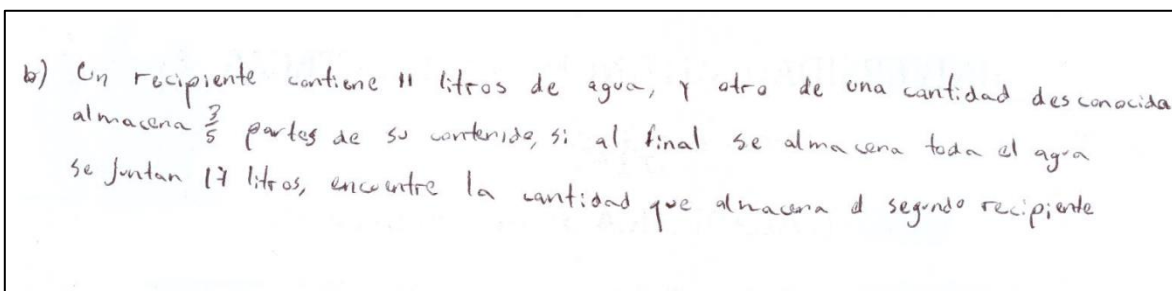 b) Un recipiente contiene 11 litros de agua, y otro de una cantidad desconocida
almacena 3/5 partes de su contenido, si al final se almacena toda el agua
se juntan 17 litros, encuentre la cantidad que almacena el segundo recipiente